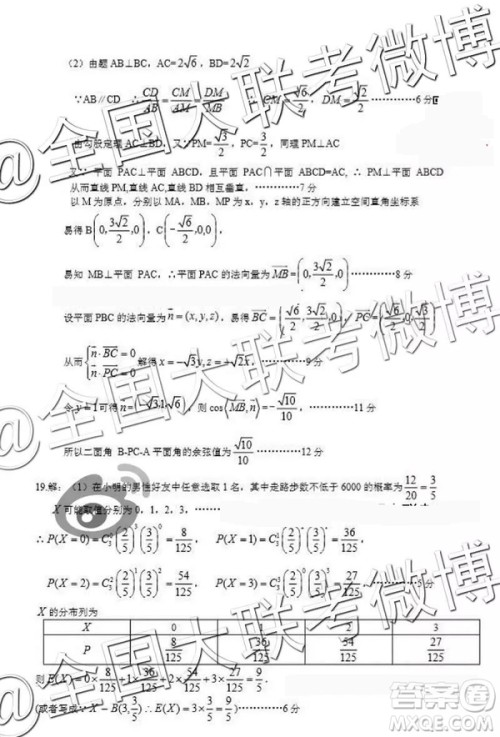 (2) 由题 AB⊥BC, AC=2√6, BD=2√2
∵AB∥CD ∴CD/AB=CM/AM=DM/MB ∴CM=√6/2, DM=√2/2 …………6分
由勾股定理 AC⊥BD, 又∵PM=√3/2, PC=3/2, 同理 PM⊥AC
又∵ 平面 PAC⊥平面 ABCD, 且平面 PAC∩平面 ABCD=AC, ∴ PM⊥平面 ABCD
从而直线 PM,直线 AC,直线 BD 相互垂直, …………7分
以 M 为原点, 分别以 MA、MB、MP 为 x, y, z 轴的正方向建立空间直角坐标系
易得 B(0,3√2/2,0), C(-√6/2,0,0),
易知 MB⊥平面 PAC, ∴平面 PAC 的法向量为 MB=(0,3√2/2,0) …………8分
设平面 PBC 的法向量为 n=(x,y,z), 易得 BC=
从而{n·BC=0 n·PC=0 解得
令 y=1可得 则 cos⟨MB,n⟩=-√10/10, …………11分
所以二面角 B-PC-A 平面角的余弦值为 √10/10 …………12分
19.解: (1) 在小明的男性好友中任意选取 1 名, 其中走路步数不低于 6000 的概率为 12/20=3/5
X 可能取值分别为 0, 1, 2, 3, ……
∴P(X=0)=C₃⁰(2/5)³(3/5)⁰=8/125 P(X=1)= 36/125
P(X=2)= 54/125, P(X=3)= 27/125, …………5分
X 的分布列为
X 0 1 2 3
P 8/125 36/125 54/125 27/125
则E(X)=0×8/125+1×36/125+2×54/125+3×27/125=9/5
(或者写成∵X~B(3,3/5)∴E(X)=3×3/5=9/5)…………6分
@全国大联考微博
@全国大联考微博
@全国大联考微博
答案圈
MXQE.COM